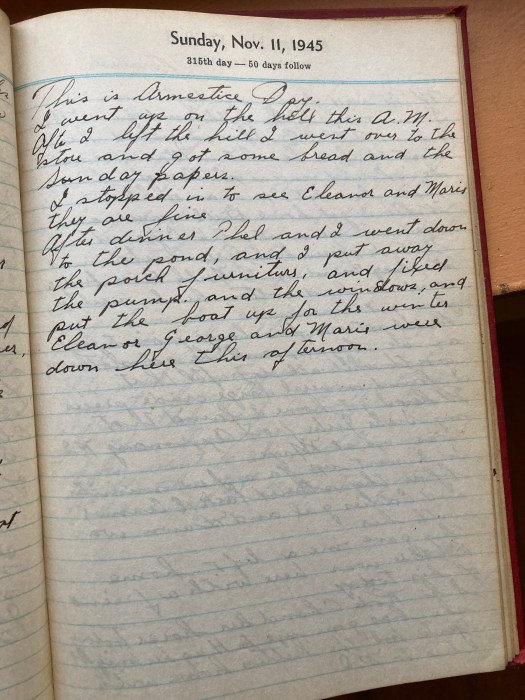 Sunday, Nov. 11, 1945
315th day — 50 days follow
This is Armestice Day.
I went up on the hill this A.M.
Afte I left the hill I went over to the
store and got some bread and the
Sunday papers.
I stopped in to see Eleanor and Marie
they are fine
After dinner Phel and I went down
to the pond, and I put away
the porch furniturs, and fixed
the pump. and the windows, and
put the boat up for the winter
Eleanor George and Marie were
down here this afternoon.